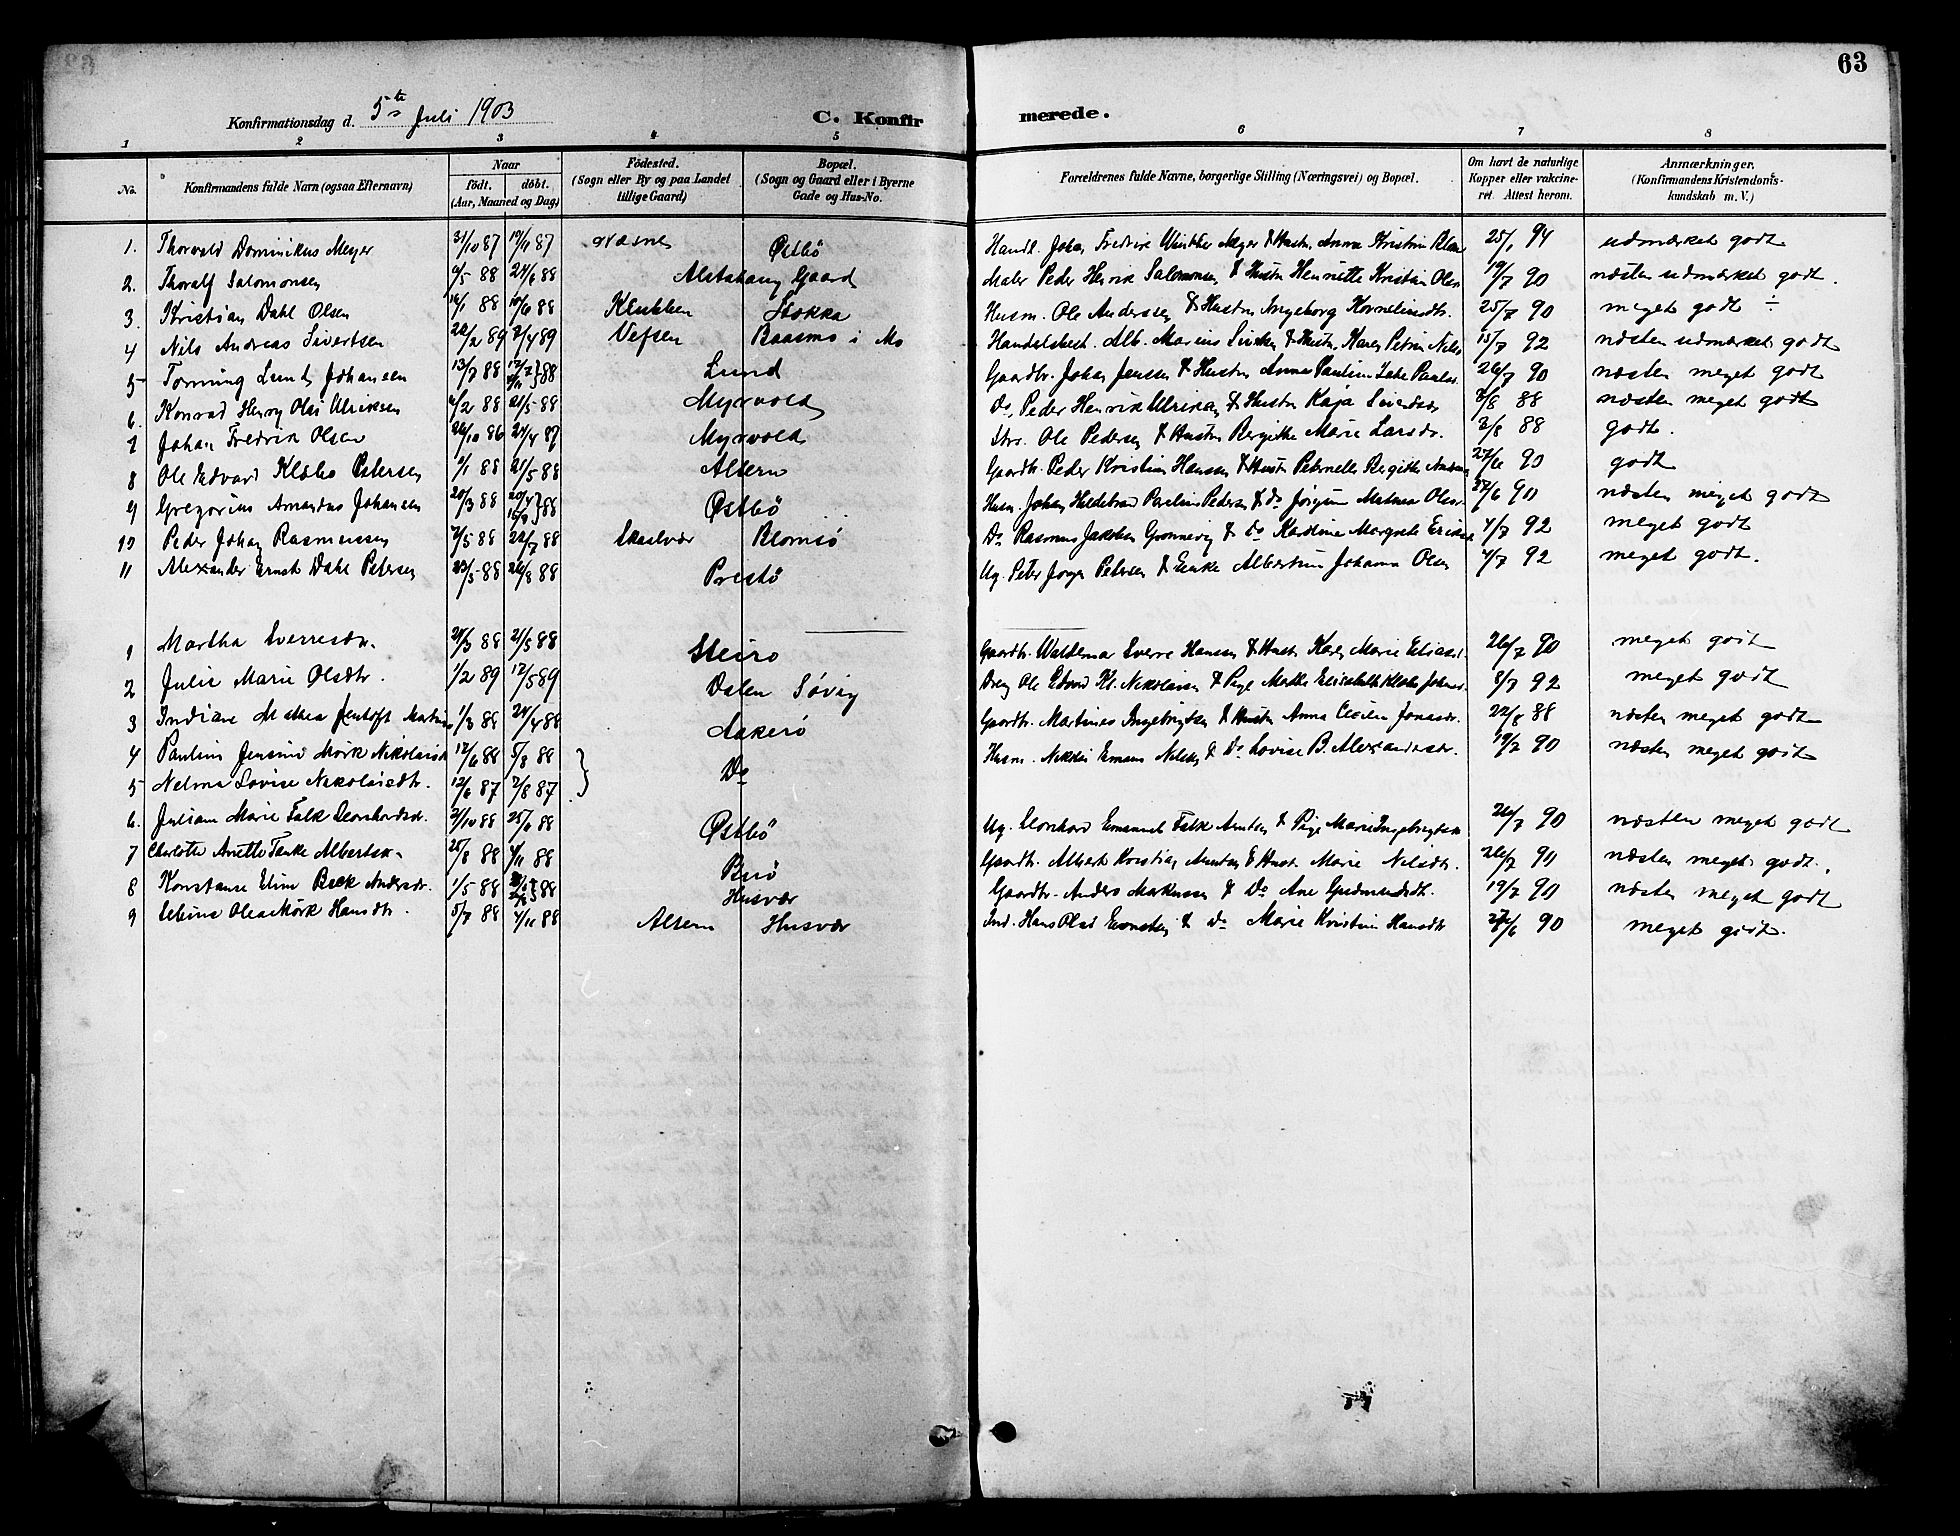 63
Konfirmationsdag d. 5te Juli 1903
C. Konfirmerede.
1 2 3 4 5 6 7 8
No. Konfirmandens fulde Navn (ogsaa Efternavn) Naar født. døbt. (Aar, Maaned og Dag) Fødested. (Sogn eller By og paa Landet tillige Gaard) Bopæl. (Sogn og Gaard eller i Byerne Gade og Hus-No. Forældrenes fulde Navne, borgerlige Stilling (Næringsvei) og Bopæl. Om havt de naturlige Kopper eller vakcineret. Attest herom. Anmærkninger. (Konfirmandens Kristendomskundskab m. V.)
1. Thorvald Dominikus Meyer 31/10 87 87 Østbø Handl. Johan Fredrik Winther Meyer & Hustr. Anna Kristine 25/1 94 udmærket godt
2. Thoralf Salomonsen 9/5 88 24/6 88 Alstahaug Gaard Maler Peder Henrik Salomonsen & Hustr Henriette Kristine Olsen 19/7 90 næsten udmærket godt.
3. Kristian Dahl Olsen 16/1 88 10/6 88 Klubben Stokka Husm. Ole Anderssen & Hustru Ingeborg Korneliusdtr. 25/7 90 meget godt ÷
4 Nils Andreas Sivertsen 22/2 89 2/4 89 Vefsen Baasmo i Mo Handelsbest. Alb. Marius & Hustr. Karen Petrine Nilsd 15/7 92 næsten udmærket godt
5 Tønning Lund Johansen 13/7 88 88 Lund Gaardbr. Johan Jenssen & Hustru Anna Pauline 26/7 90 næsten meget godt
6. Konrad Henry Olai Ulriksen 4/2 88 21/5 88 Myrvold Do. Peder Henrik Ulriksen & Hustru Kaja 2/8 88 næsten meget godt
7 Johan Fredrik Olsen 26/10 86 24/4 87 Myrvold Ole Pedersen & Hustru Bergitte Marie Larsdr. 2/8 88 godt.
8 Ole Edvard Klæbo Petersen 2/1 88 21/5 88 Altern Gaardbr. Peder Kristian Hansen & Hustr Peternelle Bergitte 27/6 90 godt
9 Gregorius Amandus Johansen 20/3 88 88 Østbø Husm. Johan Hildebrad Paulinus Pedersen & Do Jørgine Mathea Olsdr. 27/6 90 næsten meget godt
10 Peder Johan Rasmussen 7/5 88 22/7 88 Skaalvær Blomsø Do Rasmus Jakobsen Grønnevig & Do Karoline Margrete Eriksd 4/7 92 meget godt
11 Alexander Ernst Dahl Petersen 23/5 88 26/8 88 Prestø Ug. Peter Petersen & Enke Albertine Johanna Olsen 4/7 92 meget godt.
1 Martha Sverresdr. 88 21/5 88 Steiro Gaardbr. Waldemar Sverre Hansen & Hustr Karen Marie Eliasd. 26/7 90 meget godt
2 Julie Marie Olsdtr. 1/2 89 12/5 89 Østen Søvig Dreng Ole Edvard Kl. Nikolaisen & Pige Elisabeth 8/7 92 meget godt
3 Indiane Mathea Jentoft 1/3 88 24/4 88 Aakerø Gaardbr. Martinus Ingebrigtsen & Hustru Anna Cecilie Jonasdr. 22/8 88 næsten meget godt
4 Pauline Jensine Mørk Nikolaisd 12/6 88 5/8 88 Do Husm. Nikolai Nilsen & Do Lovise B. Alexandersdr. 19/7 90 næsten meget godt
5 Nelma Lovise Nikolaisdtr. 12/6 87 7/8 87
6. Juliane Marie Falk Leonhardsdr. 88 88 Østbø Ug. Leonhard Emanuel Falk & Pige Marie Ingebrigtsd 26/7 90 næsten meget godt
7 Charlotte Anette Tanke Albertsdr. 25/8 88 4/11 88 Buø Gaardbr. Albert Kristian & Hustr. Marie Nilsdtr. 26/7 90 næsten meget godt.
8 Konstanse Eline Bæk Andersdr. 1/5 88 88 Husvær Gaardbr. Anders Markussen & Do Ane Gudmundsdtr. 19/7 90 næsten meget godt
9 Oleamørk Hansdtr. 5/7 88 4/11 88 Alsten Husvær Ind. Hans Olai & Do Marie Kristine Hansdtr 27/6 90 meget godt.